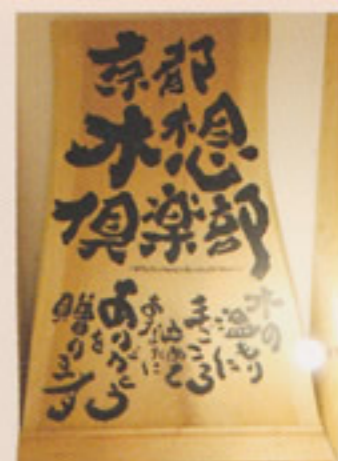 京都
木想
倶楽部
木の
温もりに
まごころ
込めて
あなたに
ありがとう
を
贈ります